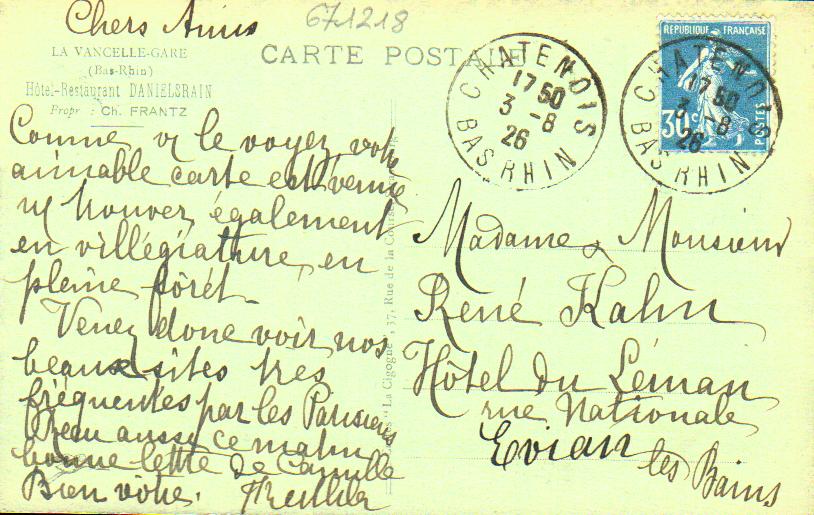 671218
Chers Amis
LA VANCELLE-GARE
(Bas-Rhin)
Hôtel-Restaurant DANIELSRAIN
Propr : Ch. FRANTZ
CARTE POSTALE
CHATENOIS
17 50
3 -8
26
BAS RHIN
REPUBLIQUE FRANÇAISE
30c
POSTES
CHATENOIS
17 50
3 -8
26
BAS RHIN
Comme v/ le voyez votre
aimable carte est venue
n/ trouver également
en villégiature, en
pleine fôrêt.
Venez donc voir nos
beaux sites tres
fréquentés par les Parisiens
Reçu aussi ce matin
bonne lettre de Camille
Bien vôtre.
"La Cigogne", 37, Rue de la
Madame & Monsieur
René Kahn
Hôtel du Léman
rue Nationale
Evian
les Bains